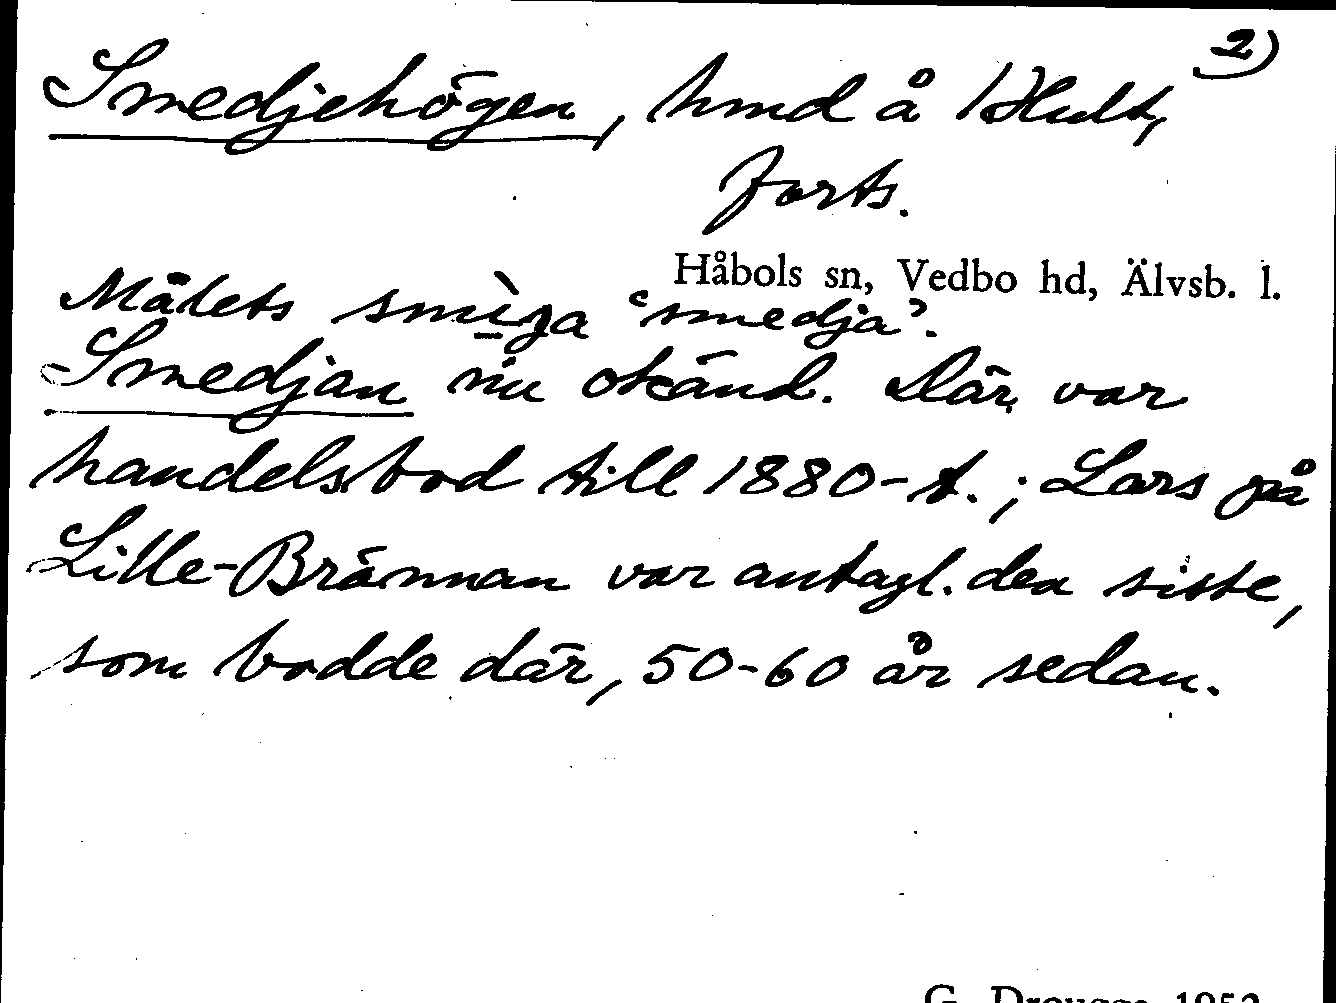 2)
Smedjehögen, hmd å 1 Hult,
forts.
Håbols sn, Vedbo hd, Älvsb. l.
Målets smìja ‘smedja’.
Smedjan nu okänd. Där var
handelsbod till 1880-t.; Lars på
Lille-Brännan var antagl. den siste,
som bodde där, 50-60 år sedan.
G. Drougge 1952